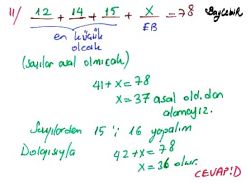 11/ 12 + 14 + 15 + x = 78
en küçük olacak
EB
(sayılar asal olmıcak)
41 + x = 78
x = 37 asal old. dan
alamayız.
Sayılardan 15 'i 16 yapalım
Dolayısıyla 42 + x = 78
x = 36 olur.
CEVAP: D